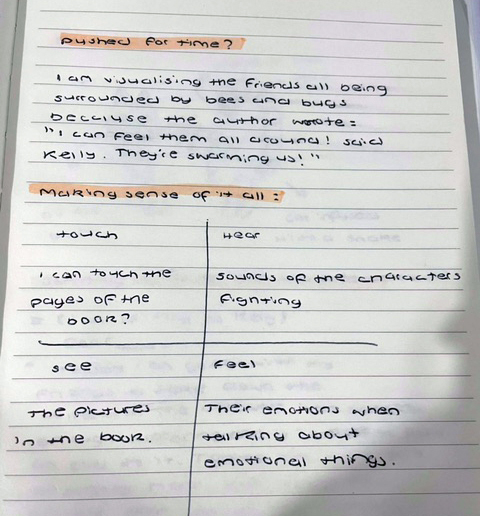 Pushed for time?
I am visualising the friends all being
surrounded by bees and bugs
because the author wrote:
"I can feel them all around! said
Kelly. They're swarming us!"
Making sense of it all:
touch Hear
I can touch the sounds of the characters
pages of the fighting
book?
see Feel
The pictures Their emotions when
in the book. talking about
emotional things.